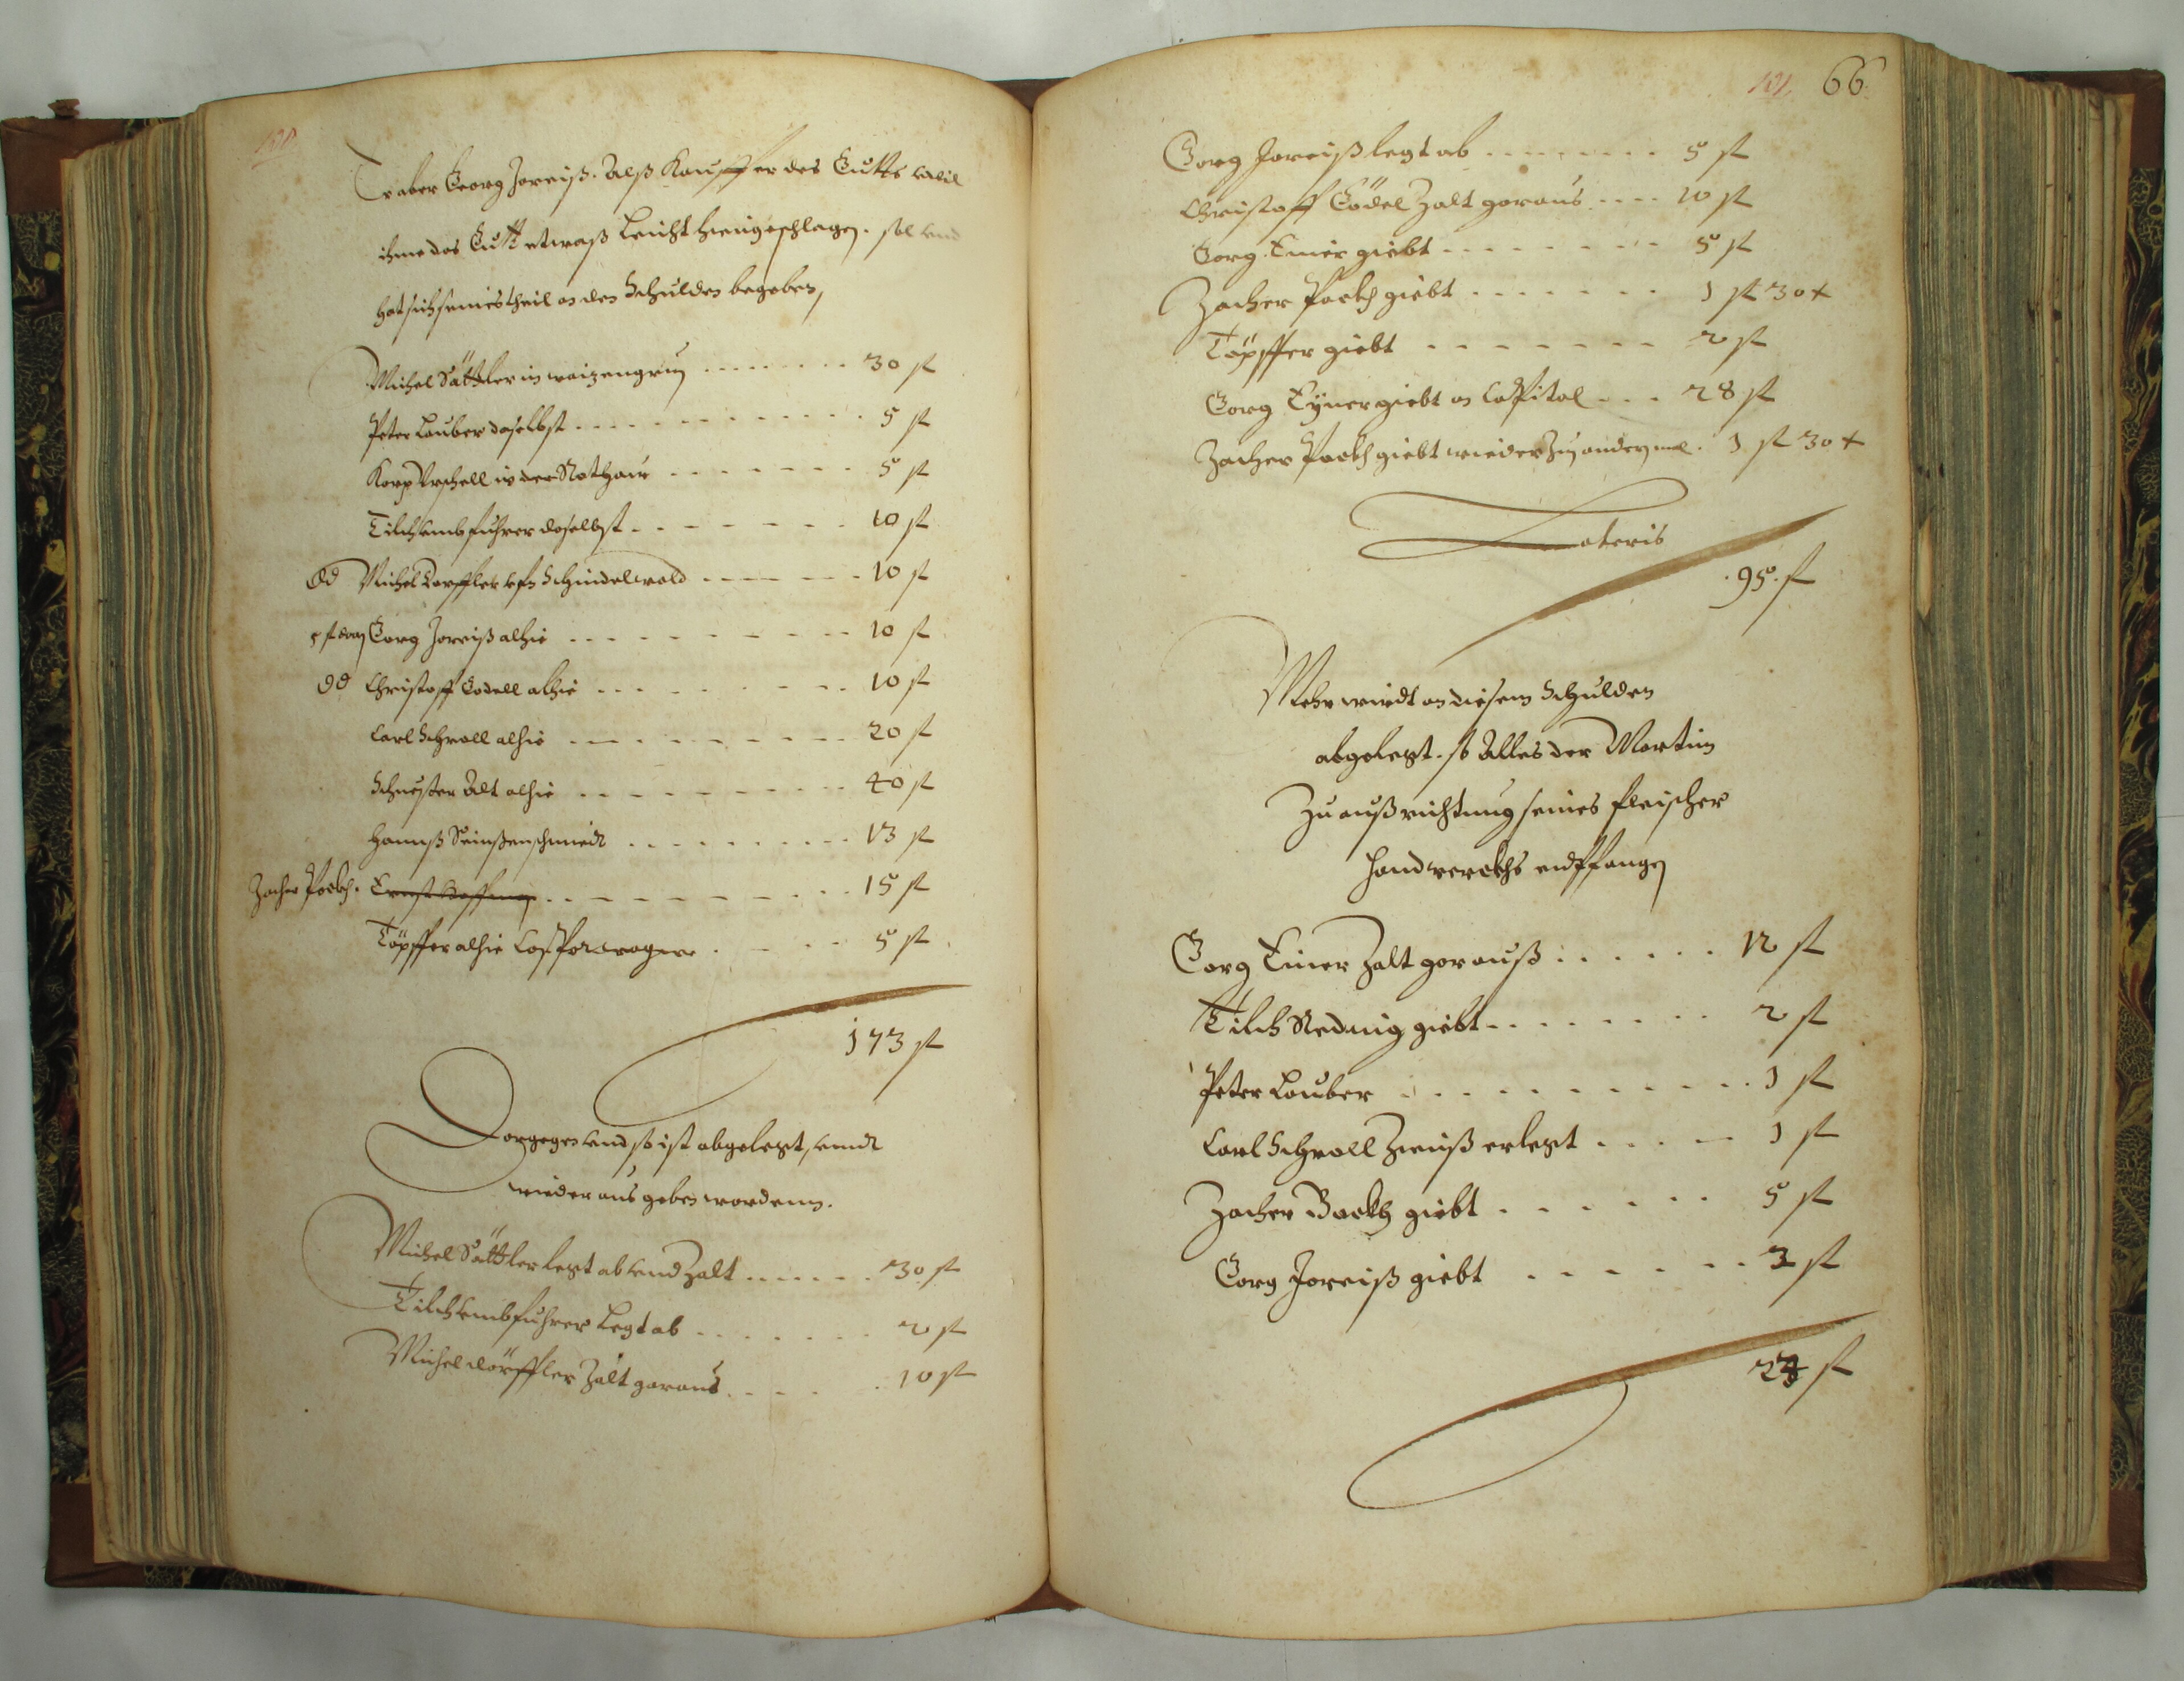 130
Er aber Georg Joreiß. Alß Kauffer des Gutts weil
ihme das Gutt etwaß Leicht hiengeschlagen. sol und
hat sich seines theil an den Schulden begeben,
Michel Sättler in waizengrün 30 fl
Peter Lauber daselbst 5 fl
in der Rothau 5 fl
Tilch Umbfuhrer daselbst 10 fl
dd Michel Dorffler ufn Schindelwald 10 fl
5 fl Georg Joreiß alhie 10 fl
dd Christoff Godell alhie 10 fl
Carl Schroll alhie 20 fl
Schuster Alt alhie 40 fl
Hannß Seinßenschmidt 13 fl
Zacher Poekh. 15 fl
Töpffer alhie Casspar wagner 5 fl
173 fl
Dargegen und so ist abgelegt, undt
wieder aus geben wordenn.
Michel Sättler legt ab und zalt 30 fl
Tilch Umbfuhrer Legt ab 2 fl
Michel dörffler Zalt garaus 10 fl
131 66
Gorg Joreiß legt ab 5 fl
Christoff Gödel Zalt garaus 10 fl
Gorg Einer giebt 5 fl
Zacher Poekh giebt 1 fl 30 x
Töpffer giebt 2 fl
Gorg Eyner giebt an Cappital 28 fl
Zacher Poekh giebt wieder zum andernmal. 1 fl 30 x
Lateris
.95. fl
Mehr wirdt an diesem Schulden
abgelegt. so Alles der Martin
Zu außrichtung seines fleischer
Handwerckhs endtpfangen
Gorg Einer Zalt gorauß 12 fl
Tilch giebt 2 fl
Peter Lauber 1 fl
Carl Schroll Zienß erlegt 1 fl
Zacher Backh giebt 5 fl
Gorg Joreiß giebt 3 fl
24 fl